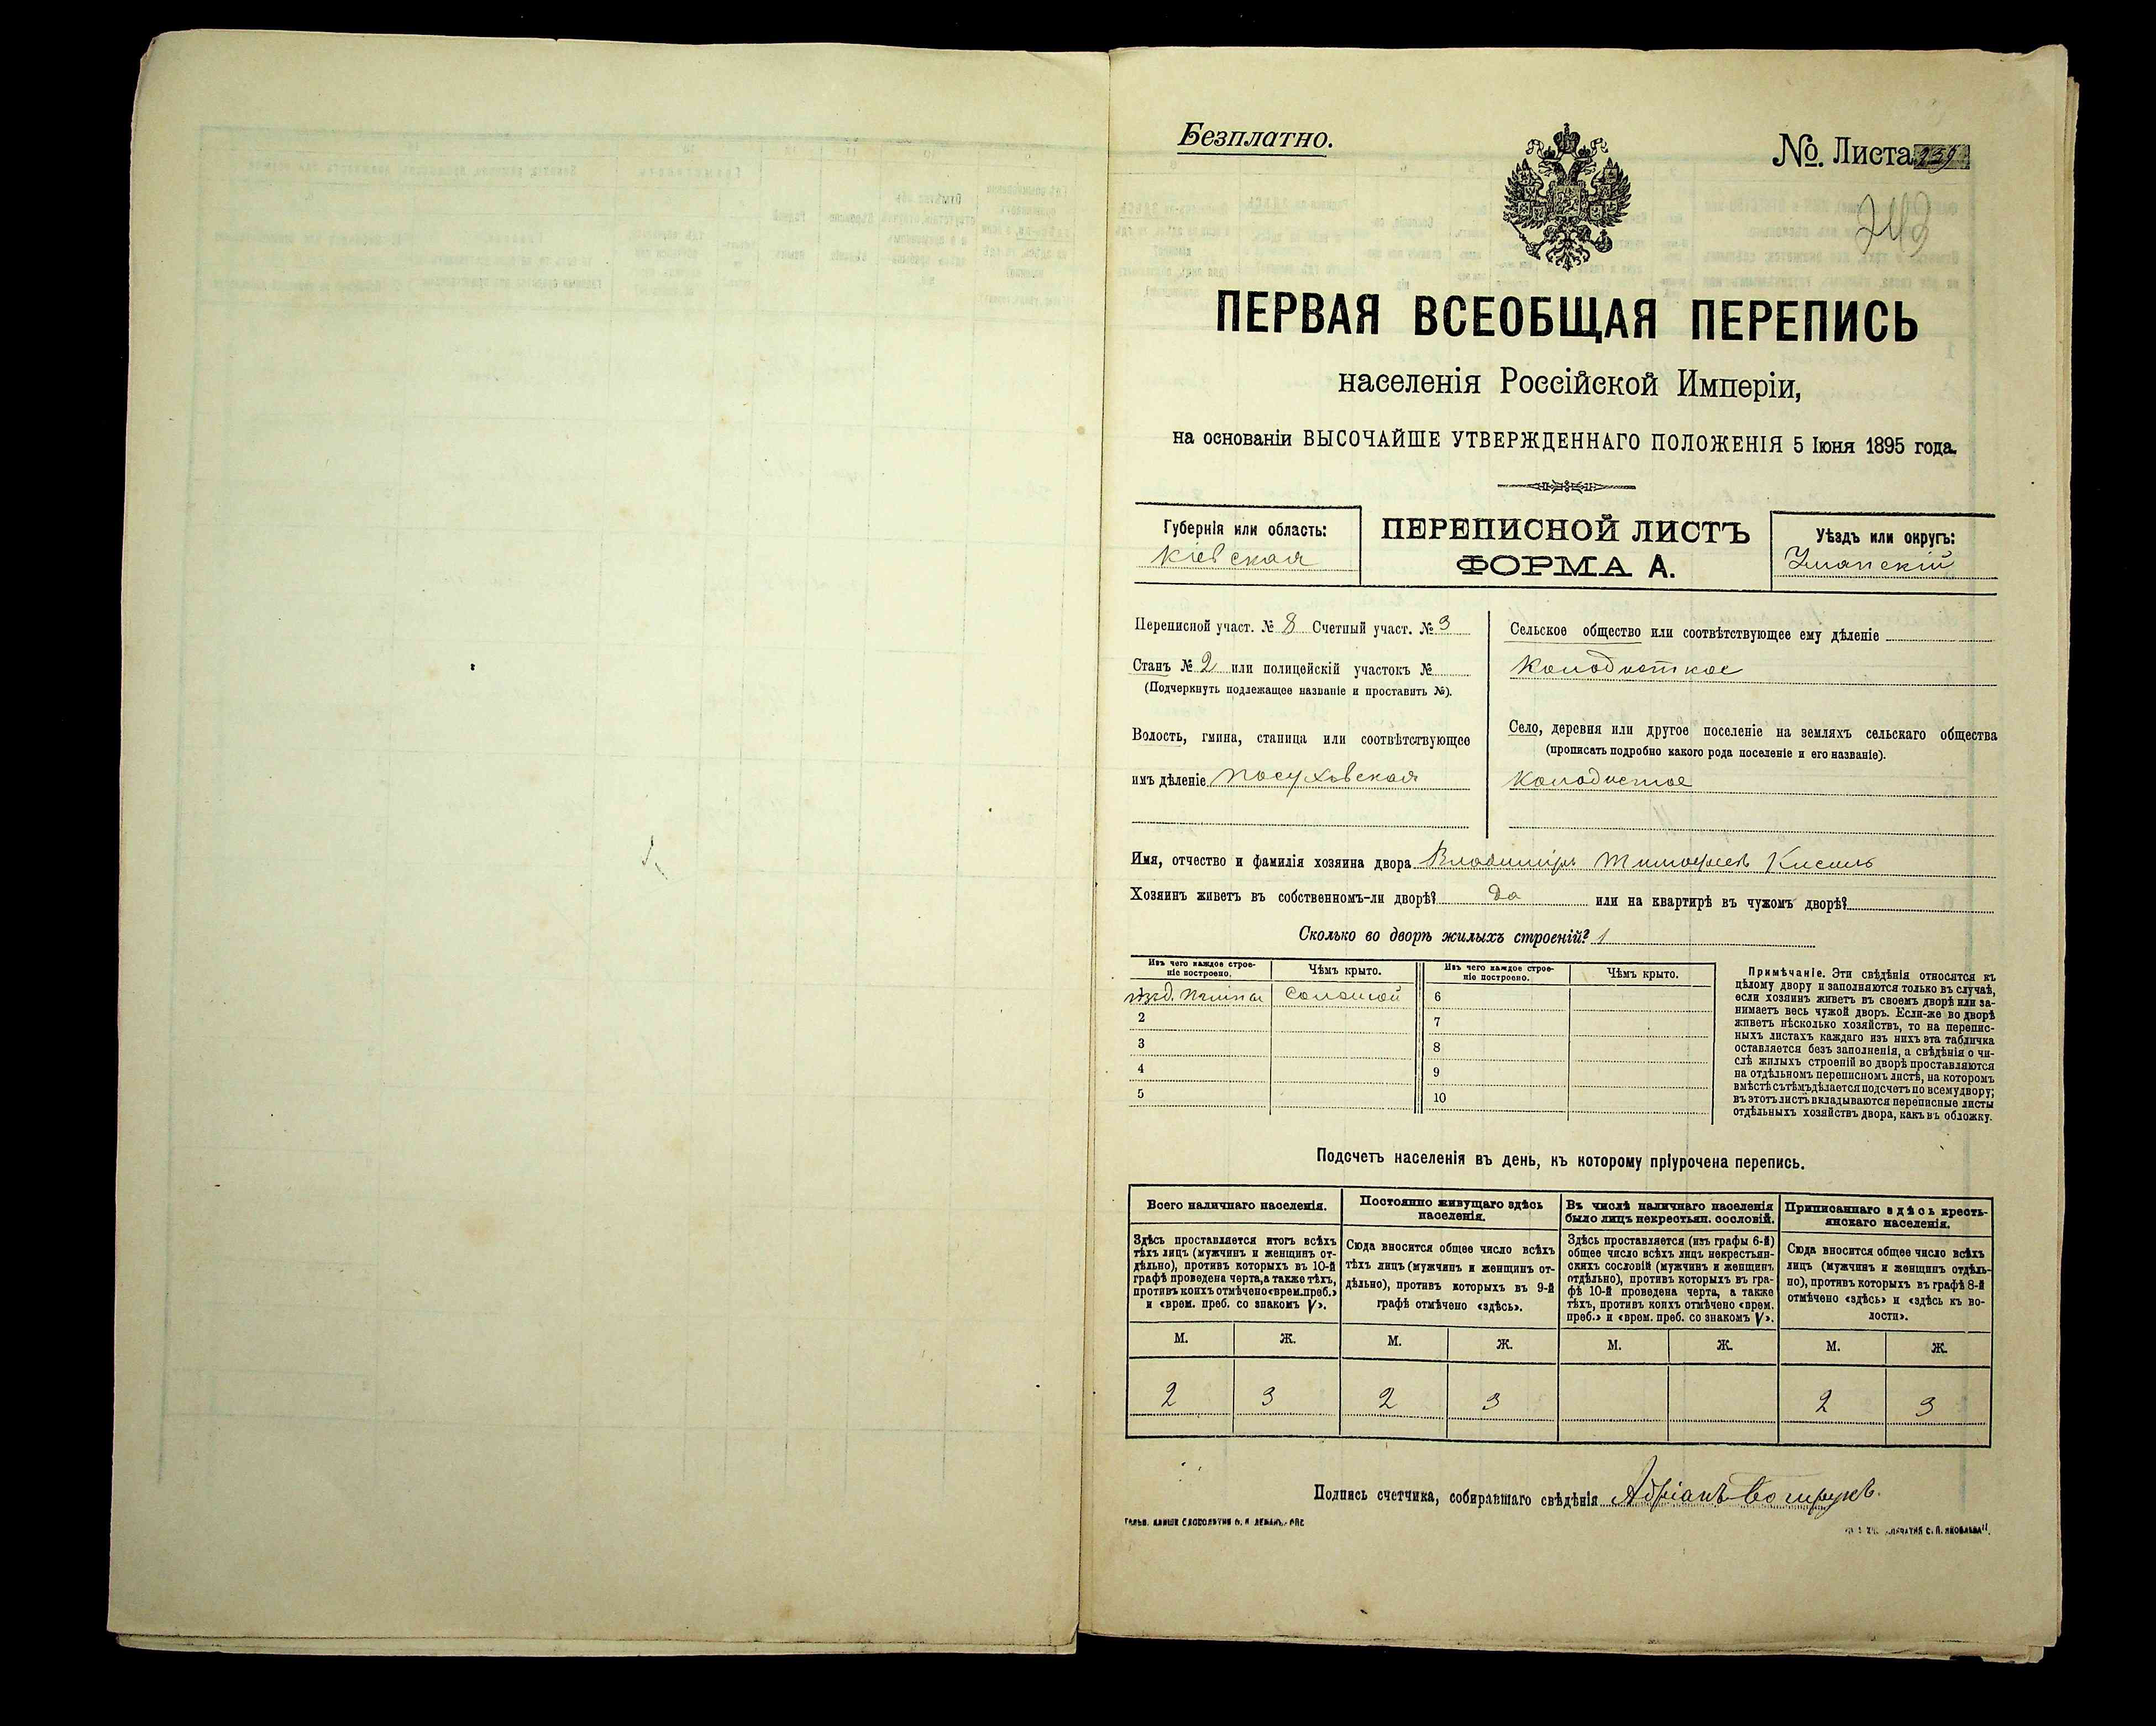 Безплатно.
№. Листа 239
243
ПЕРВАЯ ВСЕОБЩАЯ ПЕРЕПИСЬ
населенія Россійской Имперіи,
на основаніи ВЫСОЧАЙШЕ УТВЕРЖДЕННАГО ПОЛОЖЕНІЯ 5 Іюня 1895 года.
Губернія или область:
Кіевская
ПЕРЕПИСНОЙ ЛИСТЪ
ФОРМА А.
Уѣздъ или округъ:
Уманскій
Переписной участ. № 8 Счетный участ. № 3
Станъ № 2 или полицейскій участокъ №
(Подчеркнуть подлежащее названіе и проставить №).
Волость, гмина, станица или соотвѣтствующее
имъ дѣленіе Посуховская
Сельское общество или соотвѣтствующее ему дѣленіе
Колодистое
Село, деревня или другое поселеніе на земляхъ сельскаго общества
(прописать подробно какого рода поселеніе и его названіе).
Колодистое
Имя, отчество и фамилія хозяина двора Владиміръ Тимофеевъ Кисель
Хозяинъ живетъ въ собственномъ-ли дворѣ? да или на квартирѣ въ чужомъ дворѣ?
Сколько во дворѣ жилыхъ строеній? 1
Изъ чего каждое строе-
ніе построено.
Чѣмъ крыто.
Изъ чего каждое строе-
ніе построено.
Чѣмъ крыто.
изъ глины Соломой 6
2 7
3 8
4 9
5 10
Примѣчаніе. Эти свѣдѣнія относятся къ
цѣлому двору и заполняются только въ случаѣ,
если хозяинъ живетъ въ своемъ дворѣ или за-
нимаетъ весь чужой дворъ. Если-же во дворѣ
живетъ нѣсколько хозяйствъ, то на перепис-
ныхъ листахъ каждаго изъ нихъ эта табличка
оставляется безъ заполненія, а свѣдѣнія о чи-
слѣ жилыхъ строеній во дворѣ проставляются
на отдѣльномъ переписномъ листѣ, на которомъ
вмѣстѣ съ тѣмъ дѣлается подсчетъ по всему двору;
въ этотъ листъ вкладываются переписные листы
отдѣльныхъ хозяйствъ двора, какъ въ обложку.
Подсчетъ населенія въ день, къ которому пріурочена перепись.
Всего наличнаго населенія.
Здѣсь проставляется итогъ всѣхъ
тѣхъ лицъ (мужчинъ и женщинъ от-
дѣльно), противъ которыхъ въ 10-й
графѣ проведена черта, а также тѣхъ,
противъ коихъ отмѣчено «врем. преб.»
и «врем. преб. со знакомъ V».
Постоянно живущаго здѣсь
населенія.
Сюда вносится общее число всѣхъ
тѣхъ лицъ (мужчинъ и женщинъ от-
дѣльно), противъ которыхъ въ 9-й
графѣ отмѣчено «здѣсь».
Въ числѣ наличнаго населенія
было лицъ некрестьян. сословій.
Здѣсь проставляется (изъ графы 6-й)
общее число всѣхъ лицъ некрестьян-
скихъ сословій (мужчинъ и женщинъ
отдѣльно), противъ которыхъ въ гра-
фѣ 10-й проведена черта, а также
тѣхъ, противъ коихъ отмѣчено «врем.
преб.» и «врем. преб. со знакомъ V».
Приписаннаго здѣсь кресть-
янскаго населенія.
Сюда вносится общее число всѣхъ
лицъ (мужчинъ и женщинъ отдѣль-
но), противъ которыхъ въ графѣ 8-й
отмѣчено «здѣсь» и «здѣсь къ во-
лости».
М. Ж. М. Ж. М. Ж. М. Ж.
2 3 2 3 2 3
Подпись счетчика, собиравшаго свѣдѣнія Адріанъ